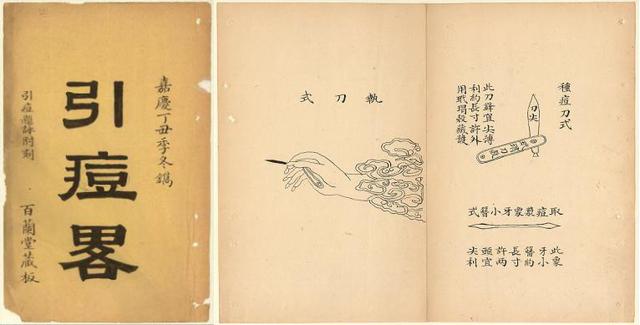 嘉慶丁丑季冬鐫
引痘畧
引痘題詠附刻
百蘭堂藏板
種痘刀式
刀尖
此刀鋒宜尖薄
利約長寸許外
用玳瑁殼藏護
取痘農象牙小簪式
此象
牙小
簪約
長寸
許两
頭宜
尖利
執刀式